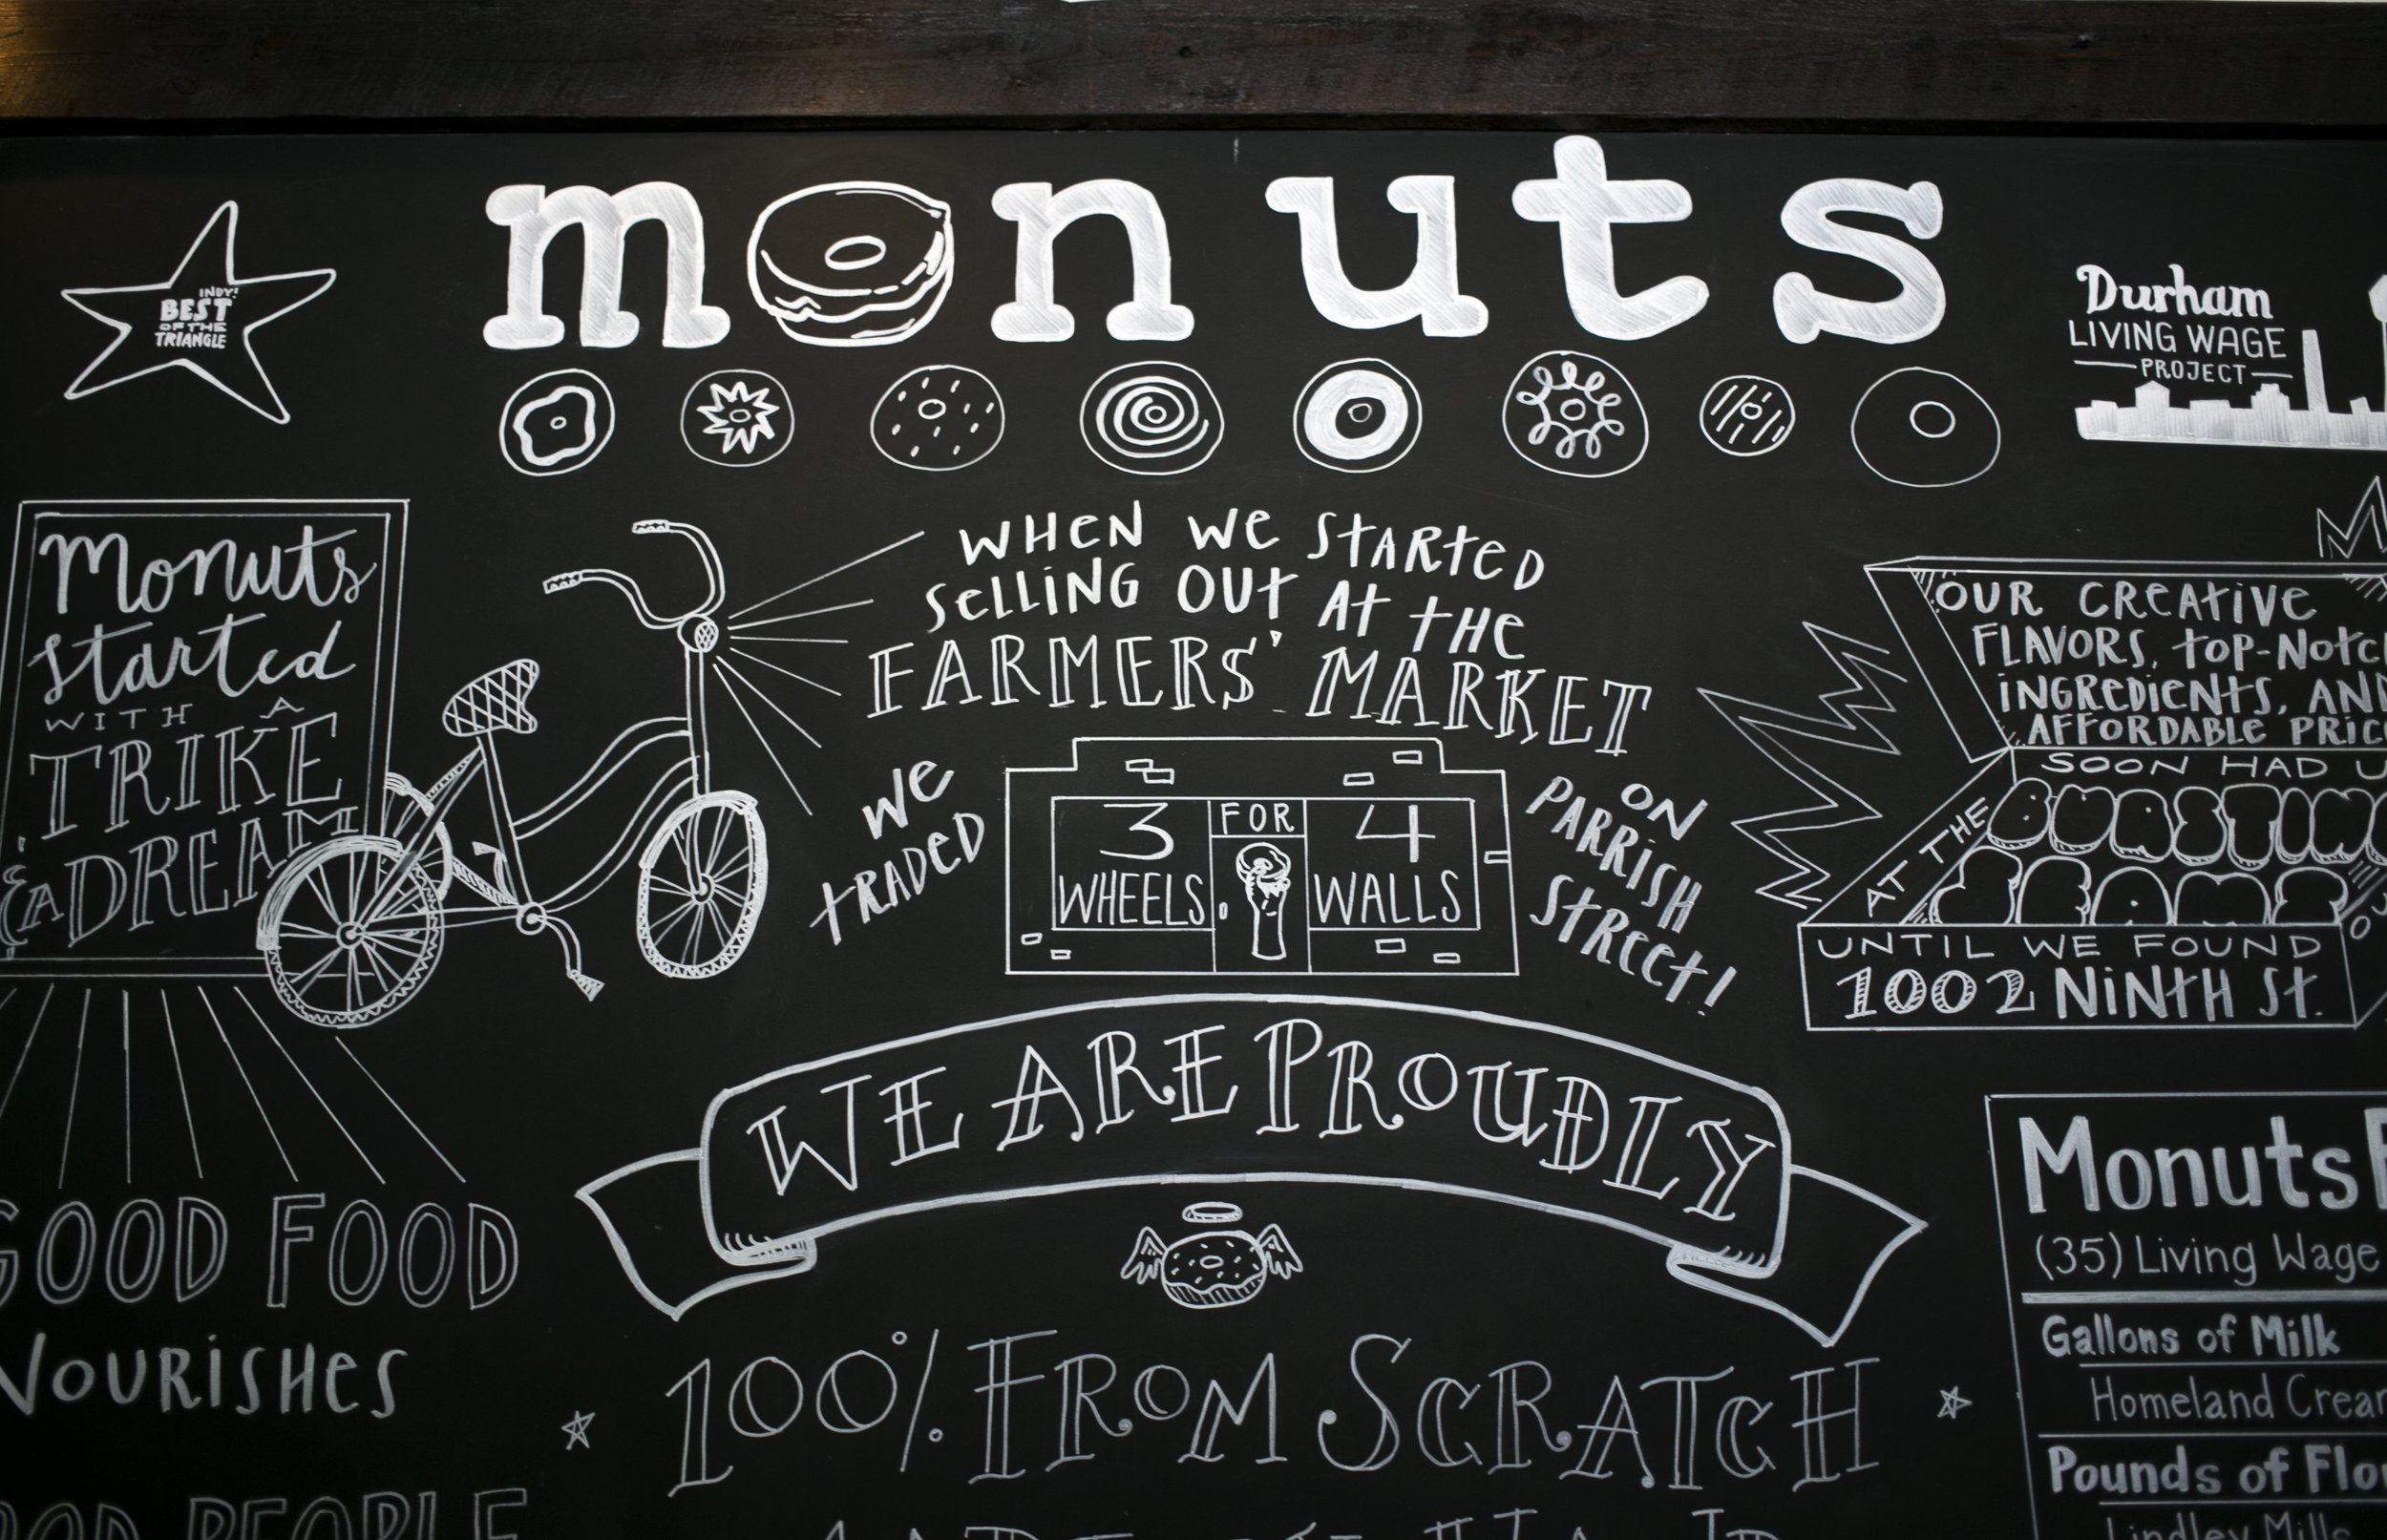 monuts
INDY!
BEST
OF THE
TRIANGLE
Durham
LIVING WAGE
PROJECT
Monuts
started
WITH A
TRIKE
& A DREAM
WHEN WE STARTED
SELLING OUT AT THE
FARMERS' MARKET
WE
TRADED
3 FOR 4
WHEELS WALLS
ON
PARRISH
STREET!
OUR CREATIVE
FLAVORS, TOP-NOTC
INGREDIENTS, AND
AFFORDABLE PRIC
SOON HAD U
BURSTING
AT THE
UNTIL WE FOUND
1002 NINTH ST.
WE ARE PROUDLY
100% FROM SCRATCH
GOOD FOOD
NOURISHES
OOD PEOPLE
Monuts
(35) Living Wage
Gallons of Milk
Homeland Crea
Pounds of Flo
Lindley Mills